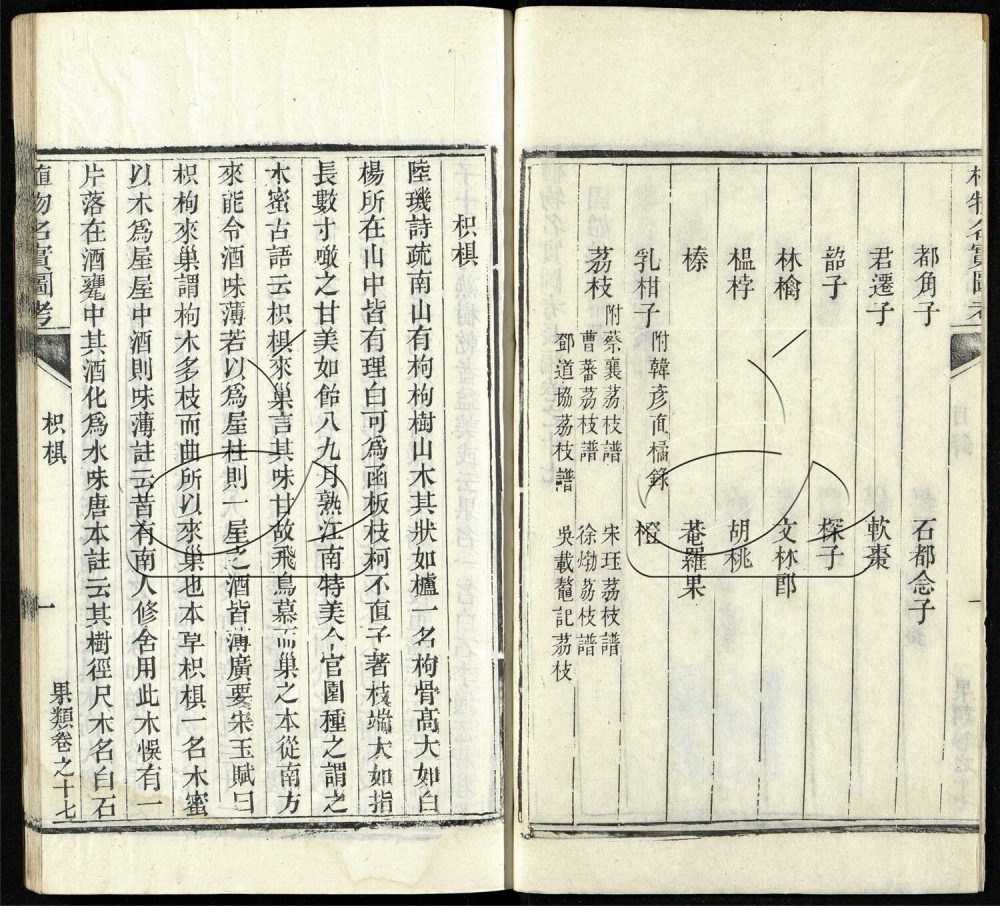 植物名實圖考 一
都角子 石都念子
君遷子 軟棗
韶子 探子
林檎 文林郎
榲桲 胡桃
榛 菴羅果
乳柑子 附韓彥直橘錄 橙
荔枝 附蔡襄荔枝譜 宋珏荔枝譜
曹蕃荔枝譜 徐𤊹荔枝譜
鄧道協荔枝譜 吳載鼇記荔枝
枳椇
陸璣詩疏南山有枸枸樹山木其狀如櫨一名枸骨高大如白
楊所在山中皆有理白可爲函板枝柯不直子著枝端大如指
長數寸噉之甘美如飴八九月熟江南特美今官園種之謂之
木蜜古語云枳椇來巢言其味甘故飛鳥慕而巢之本從南方
來能令酒味薄若以爲屋柱則一屋之酒皆薄廣要宋玉賦曰
枳枸來巢謂枸木多枝而曲所以來巢也本草枳椇一名木蜜
以木爲屋屋中酒則味薄註云昔有南人修舍用此木悞有一
片落在酒甕中其酒化爲水味唐本註云其樹徑尺木名白石
植物名實圖考 枳椇 一 果類卷之十七